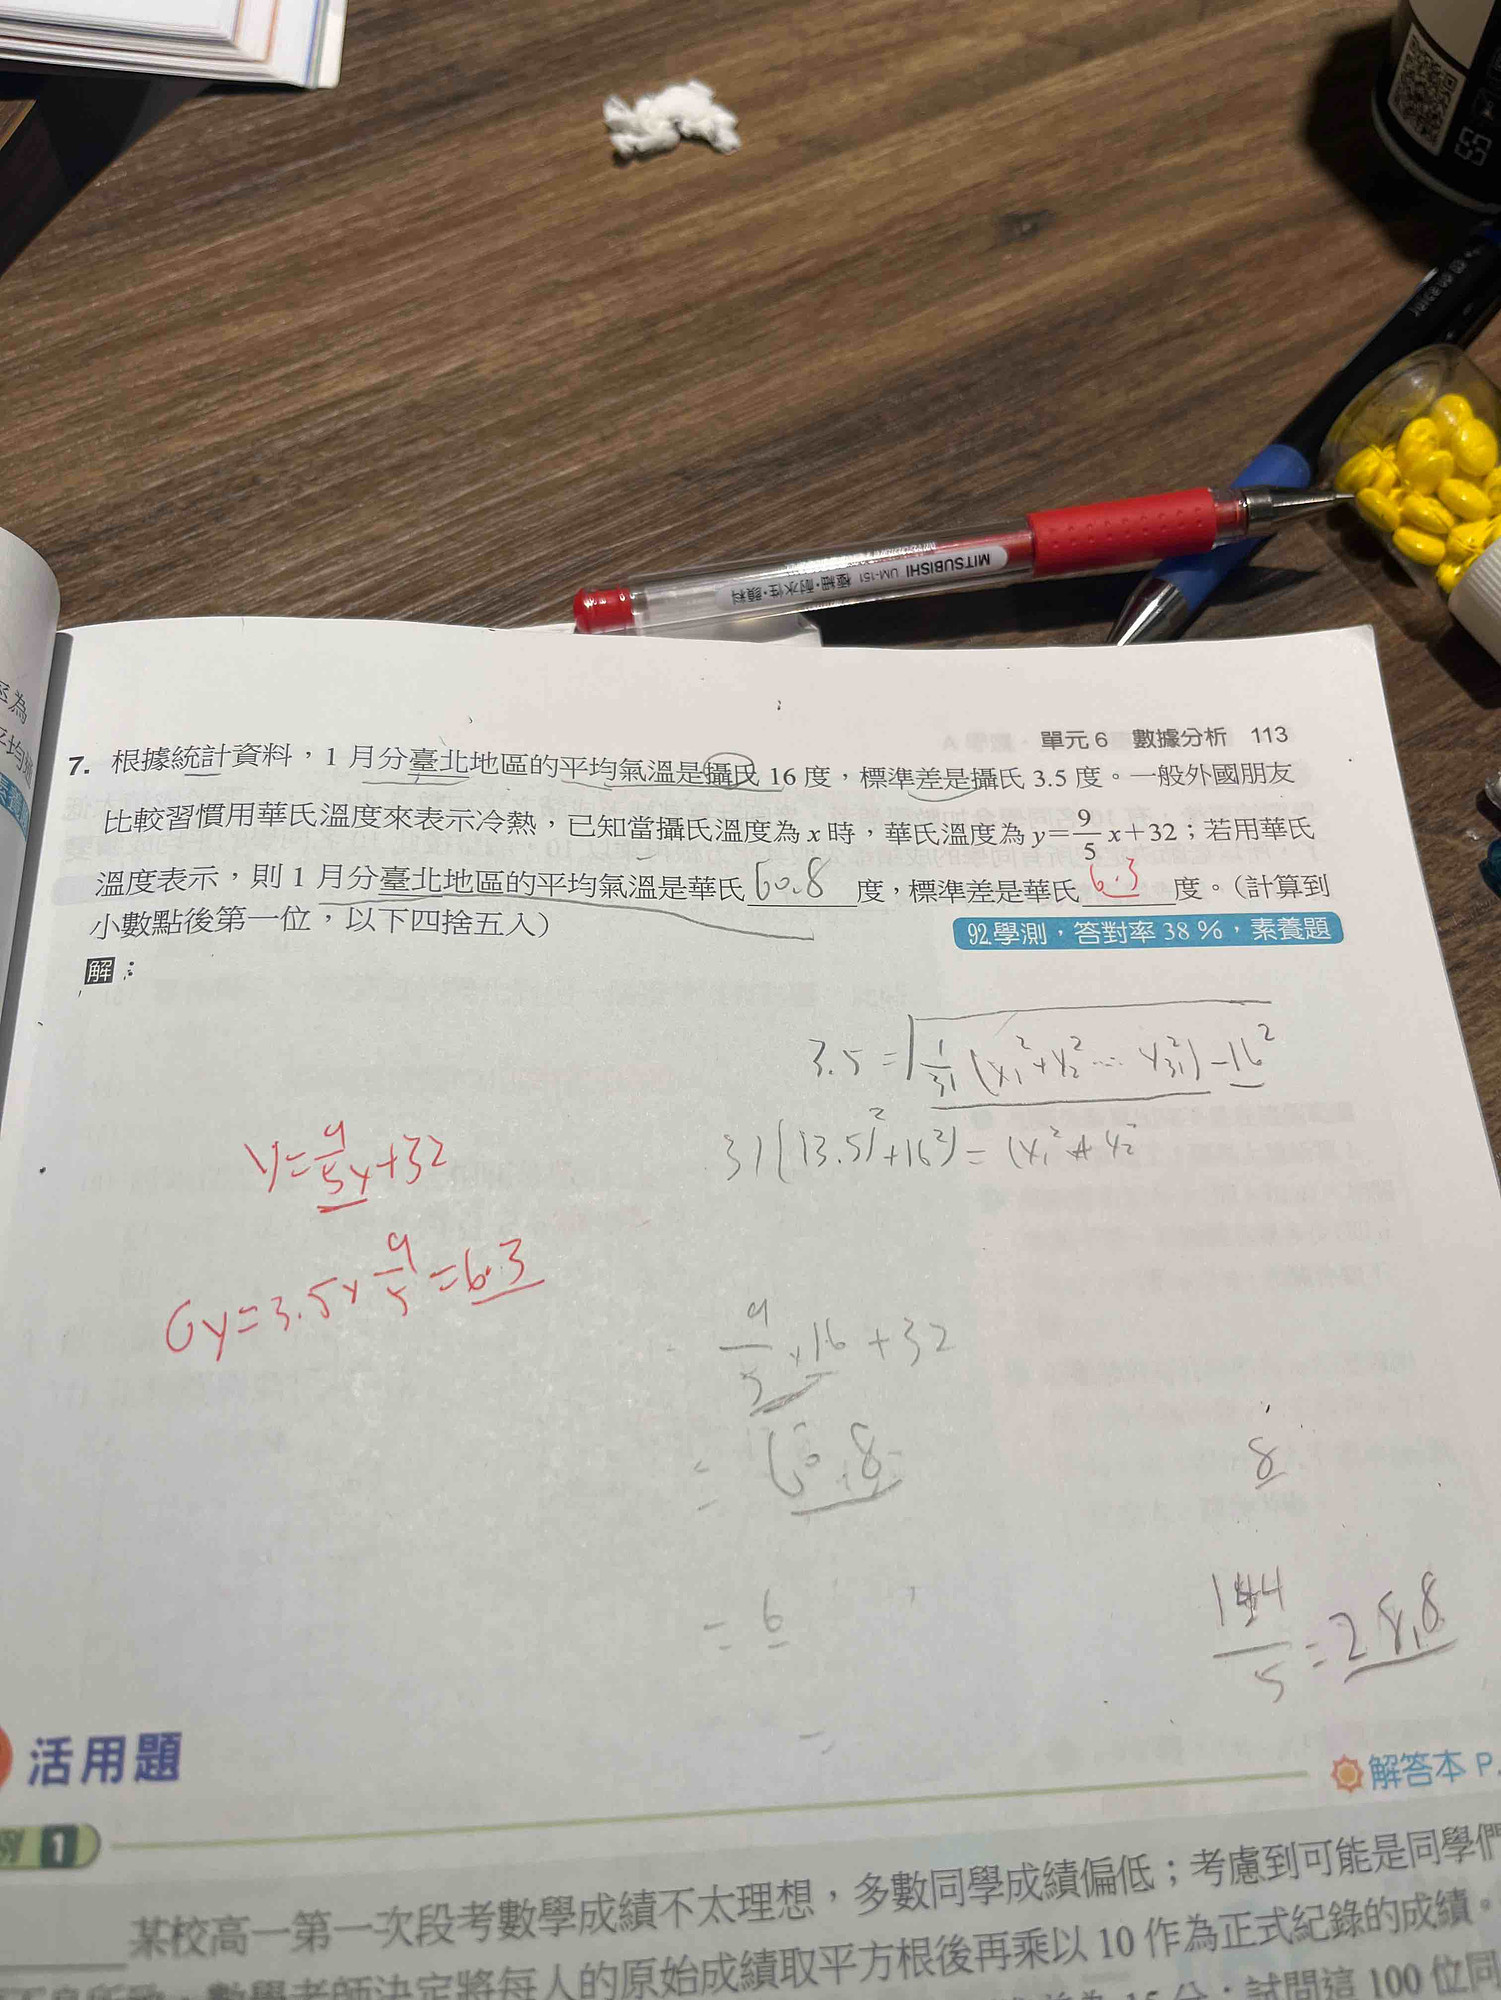 MITSUBISHI UM-151 極細·耐水性·顏料
單元 6 數據分析 113
7. 根據統計資料，1 月分臺北地區的平均氣溫是攝氏 16 度，標準差是攝氏 3.5 度。一般外國朋友
比較習慣用華氏溫度來表示冷熱，已知當攝氏溫度為 x 時，華氏溫度為 y=9/5 x+32；若用華氏
溫度表示，則 1 月分臺北地區的平均氣溫是華氏 60.8 度，標準差是華氏 6.3 度。（計算到
小數點後第一位，以下四捨五入）
92.學測，答對率 38 %，素養題
解：
3.5=√(1/31 (x₁²+x₂²…x₃₁²)-16²)
y=9/5x+32
σy=3.5×9/5=6.3
9/5×16+32
=60.8
8
=6
144/5=28.8
活用題
解答本 P.
1
某校高一第一次段考數學成績不太理想，多數同學成績偏低；考慮到可能是同學們
數學老師決定將每人的原始成績取平方根後再乘以 10 作為正式紀錄的成績。
15 分；試問這 100 位同